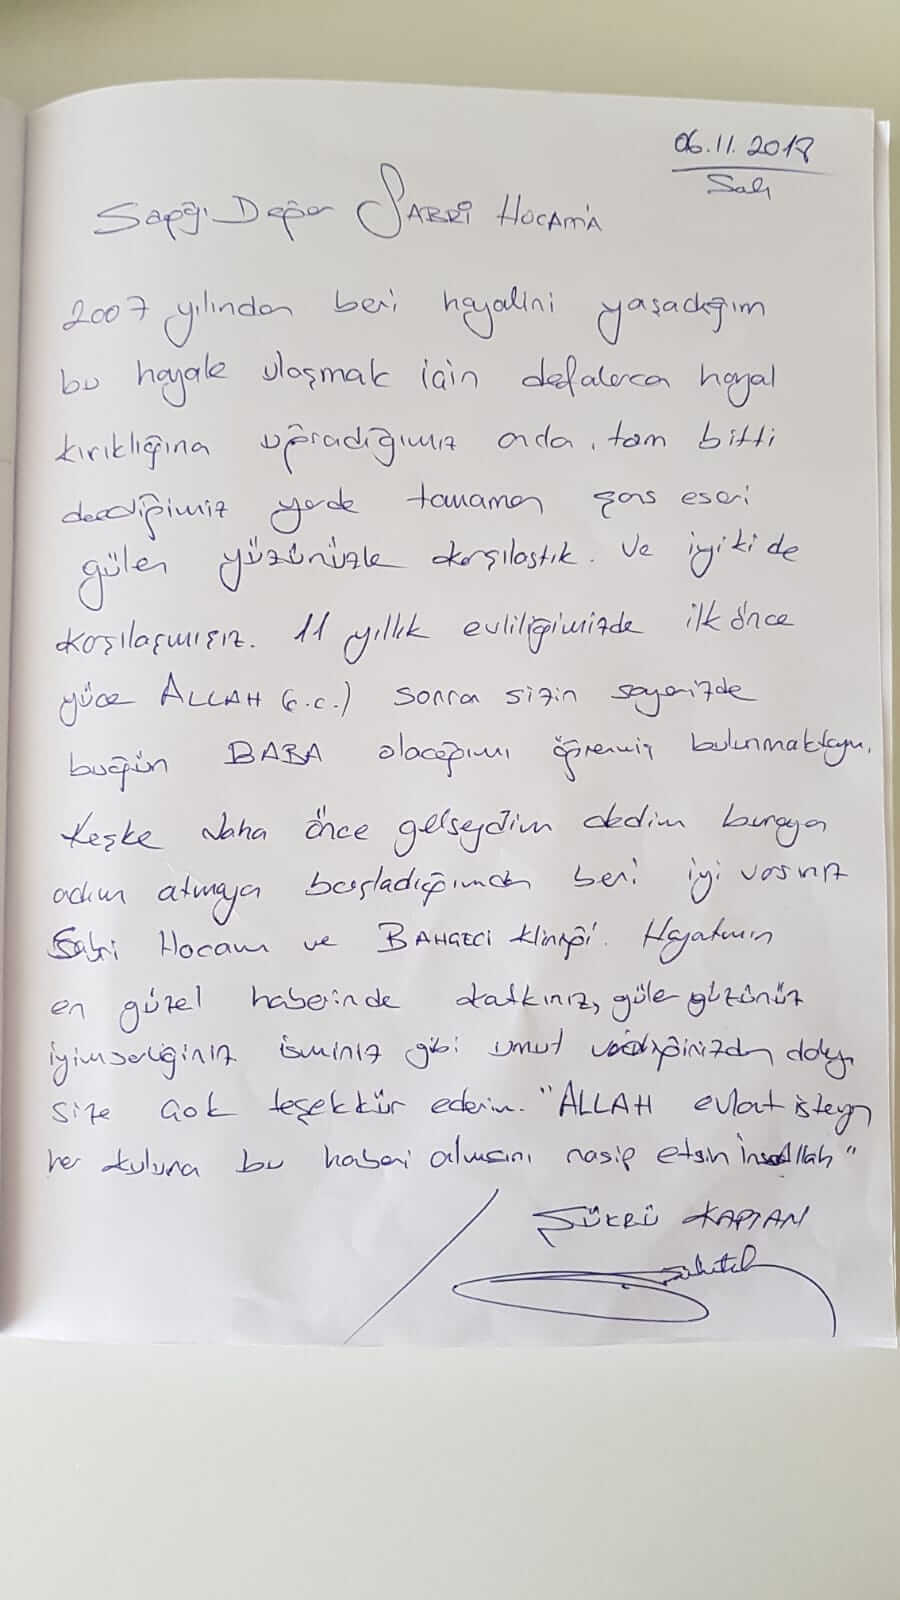 06.11.2018
Salı
Saygı Değer SABRİ HOCAM'A
2007 yılından beri hayalini yaşadığım
bu hayale ulaşmak için defalarca hayal
kırıklığına uğradığımız anda, tam bitti
dediğimiz yerde tamamen şans eseri
gülen yüzünüzle karşılaştık. Ve iyiki de
karşılaşmışız. 11 yıllık evliliğimizde ilk önce
yüce ALLAH (c.c.) sonra sizin sayenizde
bugün BABA olacağımı öğrenmiş bulunmaktayım.
Keşke daha önce gelseydim dedim buraya
adım atmaya başladığımdan beri iyi varsınız
Sabri Hocam ve BAHÇECİ Kliniği. Hayatımın
en güzel haberinde katkınız, güler yüzünüz
iyimserliğiniz isminiz gibi umut verdiğinizden dolayı
size çok teşekkür ederim. "ALLAH evlat isteyen
her kuluna bu haberi almasını nasip etsin İnşallah"
ŞÜKRÜ KAPTAN